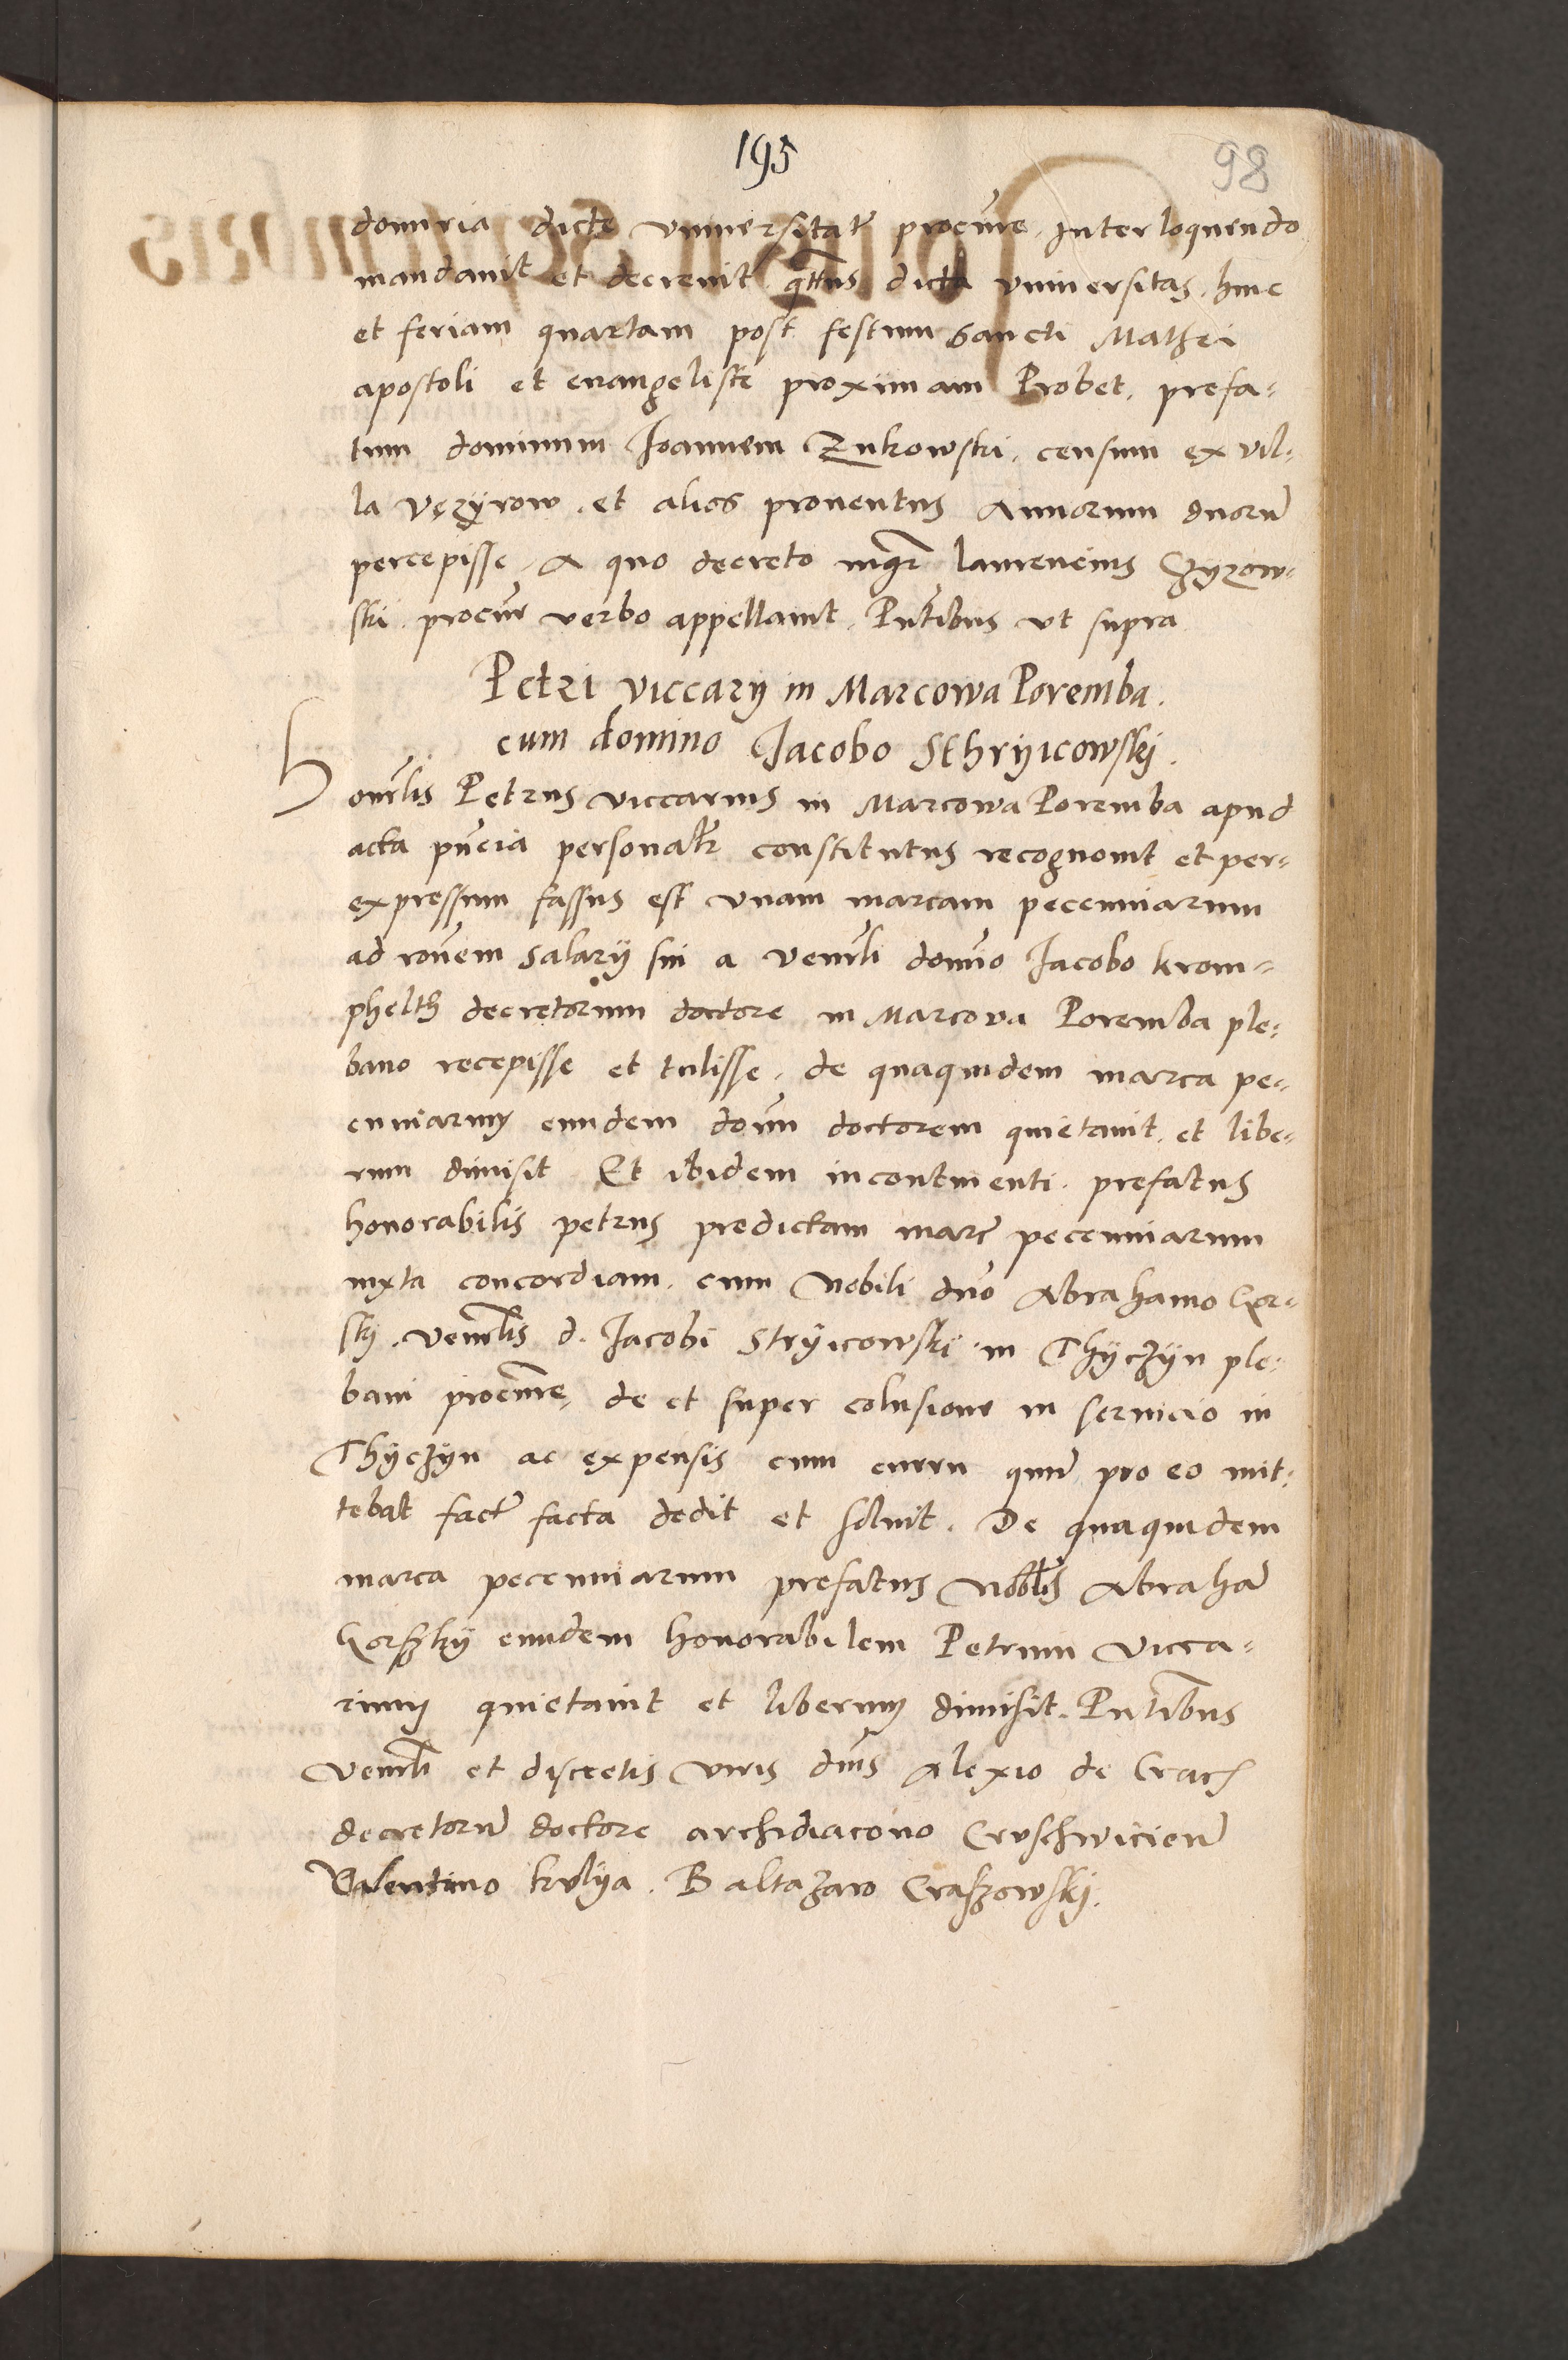 195
98
domiria dicte universitat procure. Interloquendo
mandavit et decrevit qttus dicta universitas. hinc
et feriam quartam post festum Sancti Mathei
apostoli et evangeliste proximam Probet. prefa-
tum dominum Joannem Zukowski. censum ex vil-
la Vęzÿrow. et alios proventus Annorum duorū
percepisse. A quo decreto mgr laurencius Czyzow-
ski. procur verbo appellavit. Pntibus ut supra
Petri viccarÿ in Marcowa Poremba.
cum domino Jacobo Sthrÿicowskÿ.
Honrlis Petrus viccarius in Marcowa Poremba apud
acta pncia personalr constitutus recognovit et per-
expressum fassus est unam marcam pecenniarum
ad ronem Salarÿ sui a Venrli domno Jacobo krom-
phelth decretorum doctore in Marcova Poremba ple-
bano recepisse et tulisse. de quaquidem marca pe-
cuniarum eundem domn doctorem quietavit. et libe-
rum dimisit Et ibidem incontinenti. prefatus
honorabilis petrus predictam marc pecenniarum
iuxta concordiam. cum Nobili dno Abrahamo Gor-
skÿ. Venrlis d. Jacobi Strÿicowski in Thÿczÿn ple-
bani procure, de et super colusione in servicio in
Thÿczÿn ac expensis cum curru quem pro eo mit-
tebat fact facta dedit et solvit. De quaquidem
marca pecenniarum prefatus Nobilis Abraham
Gorszkÿ eundem honorabilem Petrum vicca-
rium quietavit et liberum dimisit. Pntibus
Venrli et discretis viris dnis Alexio de Crac
decretorū doctore archidiacono Cruschviciens
Valentino kulya. Baltazaro Craszowskÿ.